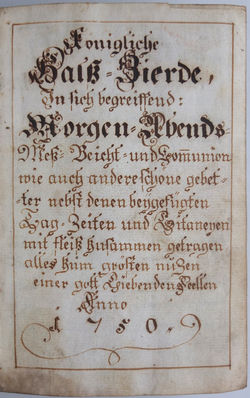 Königliche
Halß-Zierde,
In sich begreiffend:
Morgen-Abends-
Meß-Beicht-und Com̄union
wie auch andere schöne gebet-
ter nebst denen beÿgefügten
Tag-Zeiten und Litaneyen
mit fleiß Zusammen getragen
alles zum grösten nuzen
einer gott Liebenden Seellen
Anno
1750.